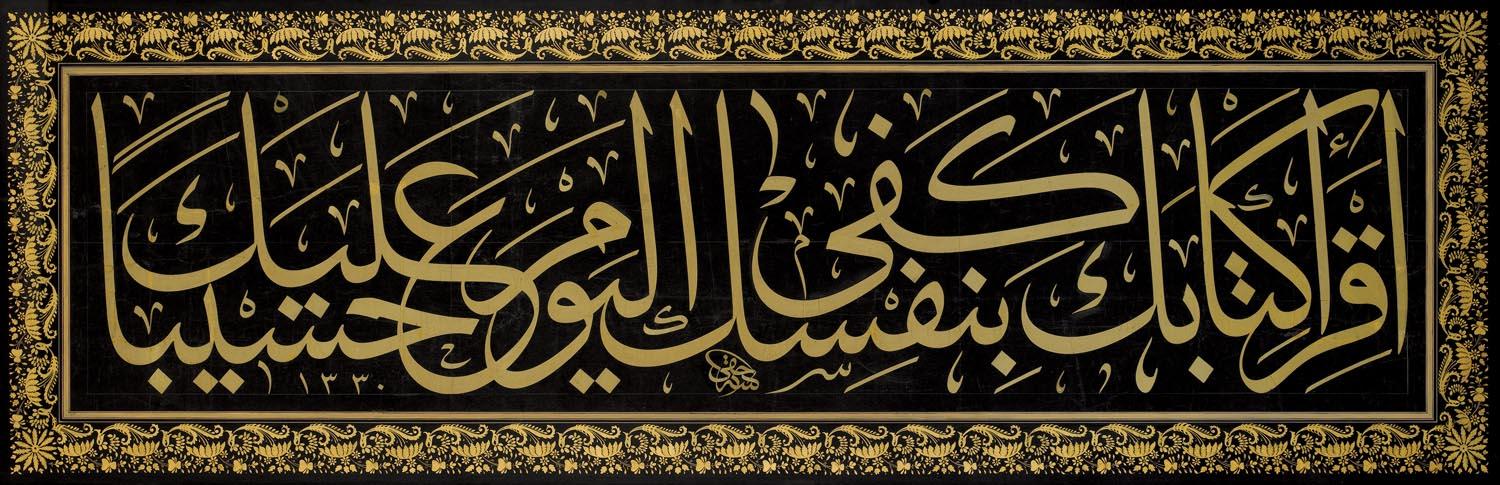 اقرأ كتابك كفى بنفسك اليوم عليك حسيباً
١٣٣٠